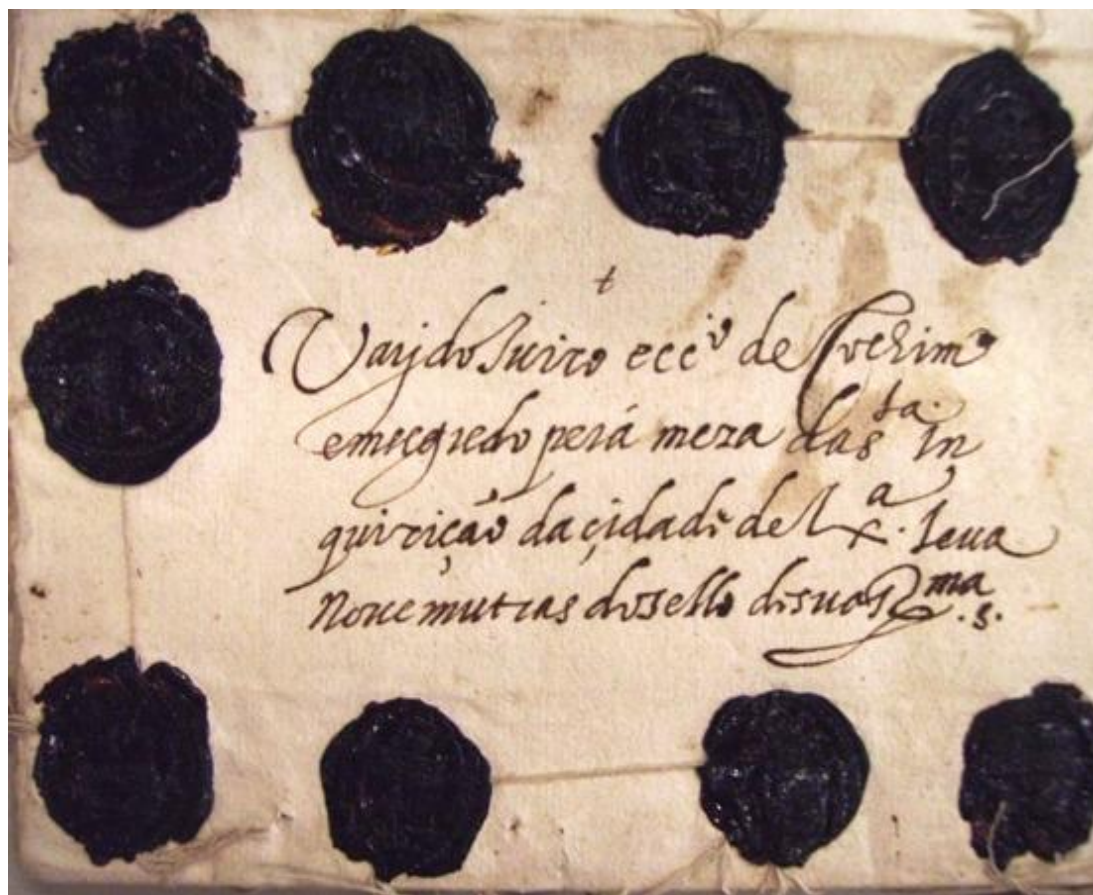 †
Vay do Juizo ecc.º de Cochim
em segredo pera á meza da s.ta In
quirição da çidade de Lx.a leua
Noue mutras do sello de sua R.ma s.